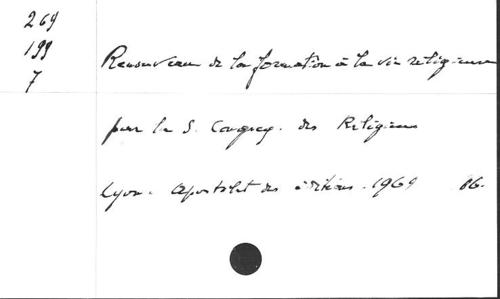 269
199
7
Renouveau de la formation à la vie religieuse
par la S. Congreg. des Religieux
Lyon. Apostolat des éditions. 1969 86.